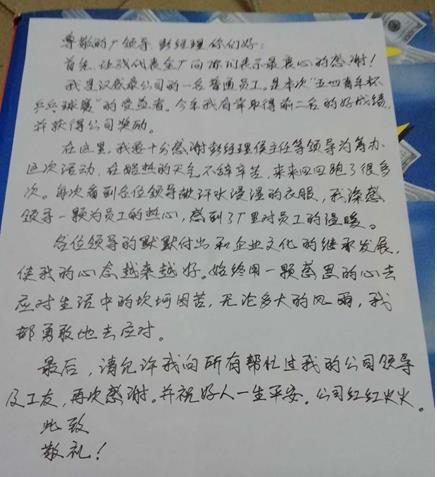 尊敬的厂领导、彭经理你们好:
首先,让我代表全厂向你们表示最衷心的感谢!
我是汉感最公司的一名普通员工。是本次"五四青年杯
乒乓球赛"的受益者。今年我有幸取得前二名的好成绩,
并获得公司奖励。
在这里,我要十分感谢彭经理侯主任等领导为筹办
这次活动,在酷热的天气不辞辛苦,来来回回跑了很多
次。每次看到各位领导被汗水浸湿的衣服,我深感
领导一颗为员工的热心,感到了厂里对员工的温暖。
各位领导的默默付出和企业文化的继承发展,
使我的心态越来越好。始终用一颗感恩的心去
应对生活中的坎坷困苦,无论多大的风雨,我
都勇敢地去应对。
最后,请允许我向所有帮忙过我的公司领导
及工友,再次感谢。并祝好人一生平安。公司红红火火。
此致
敬礼!